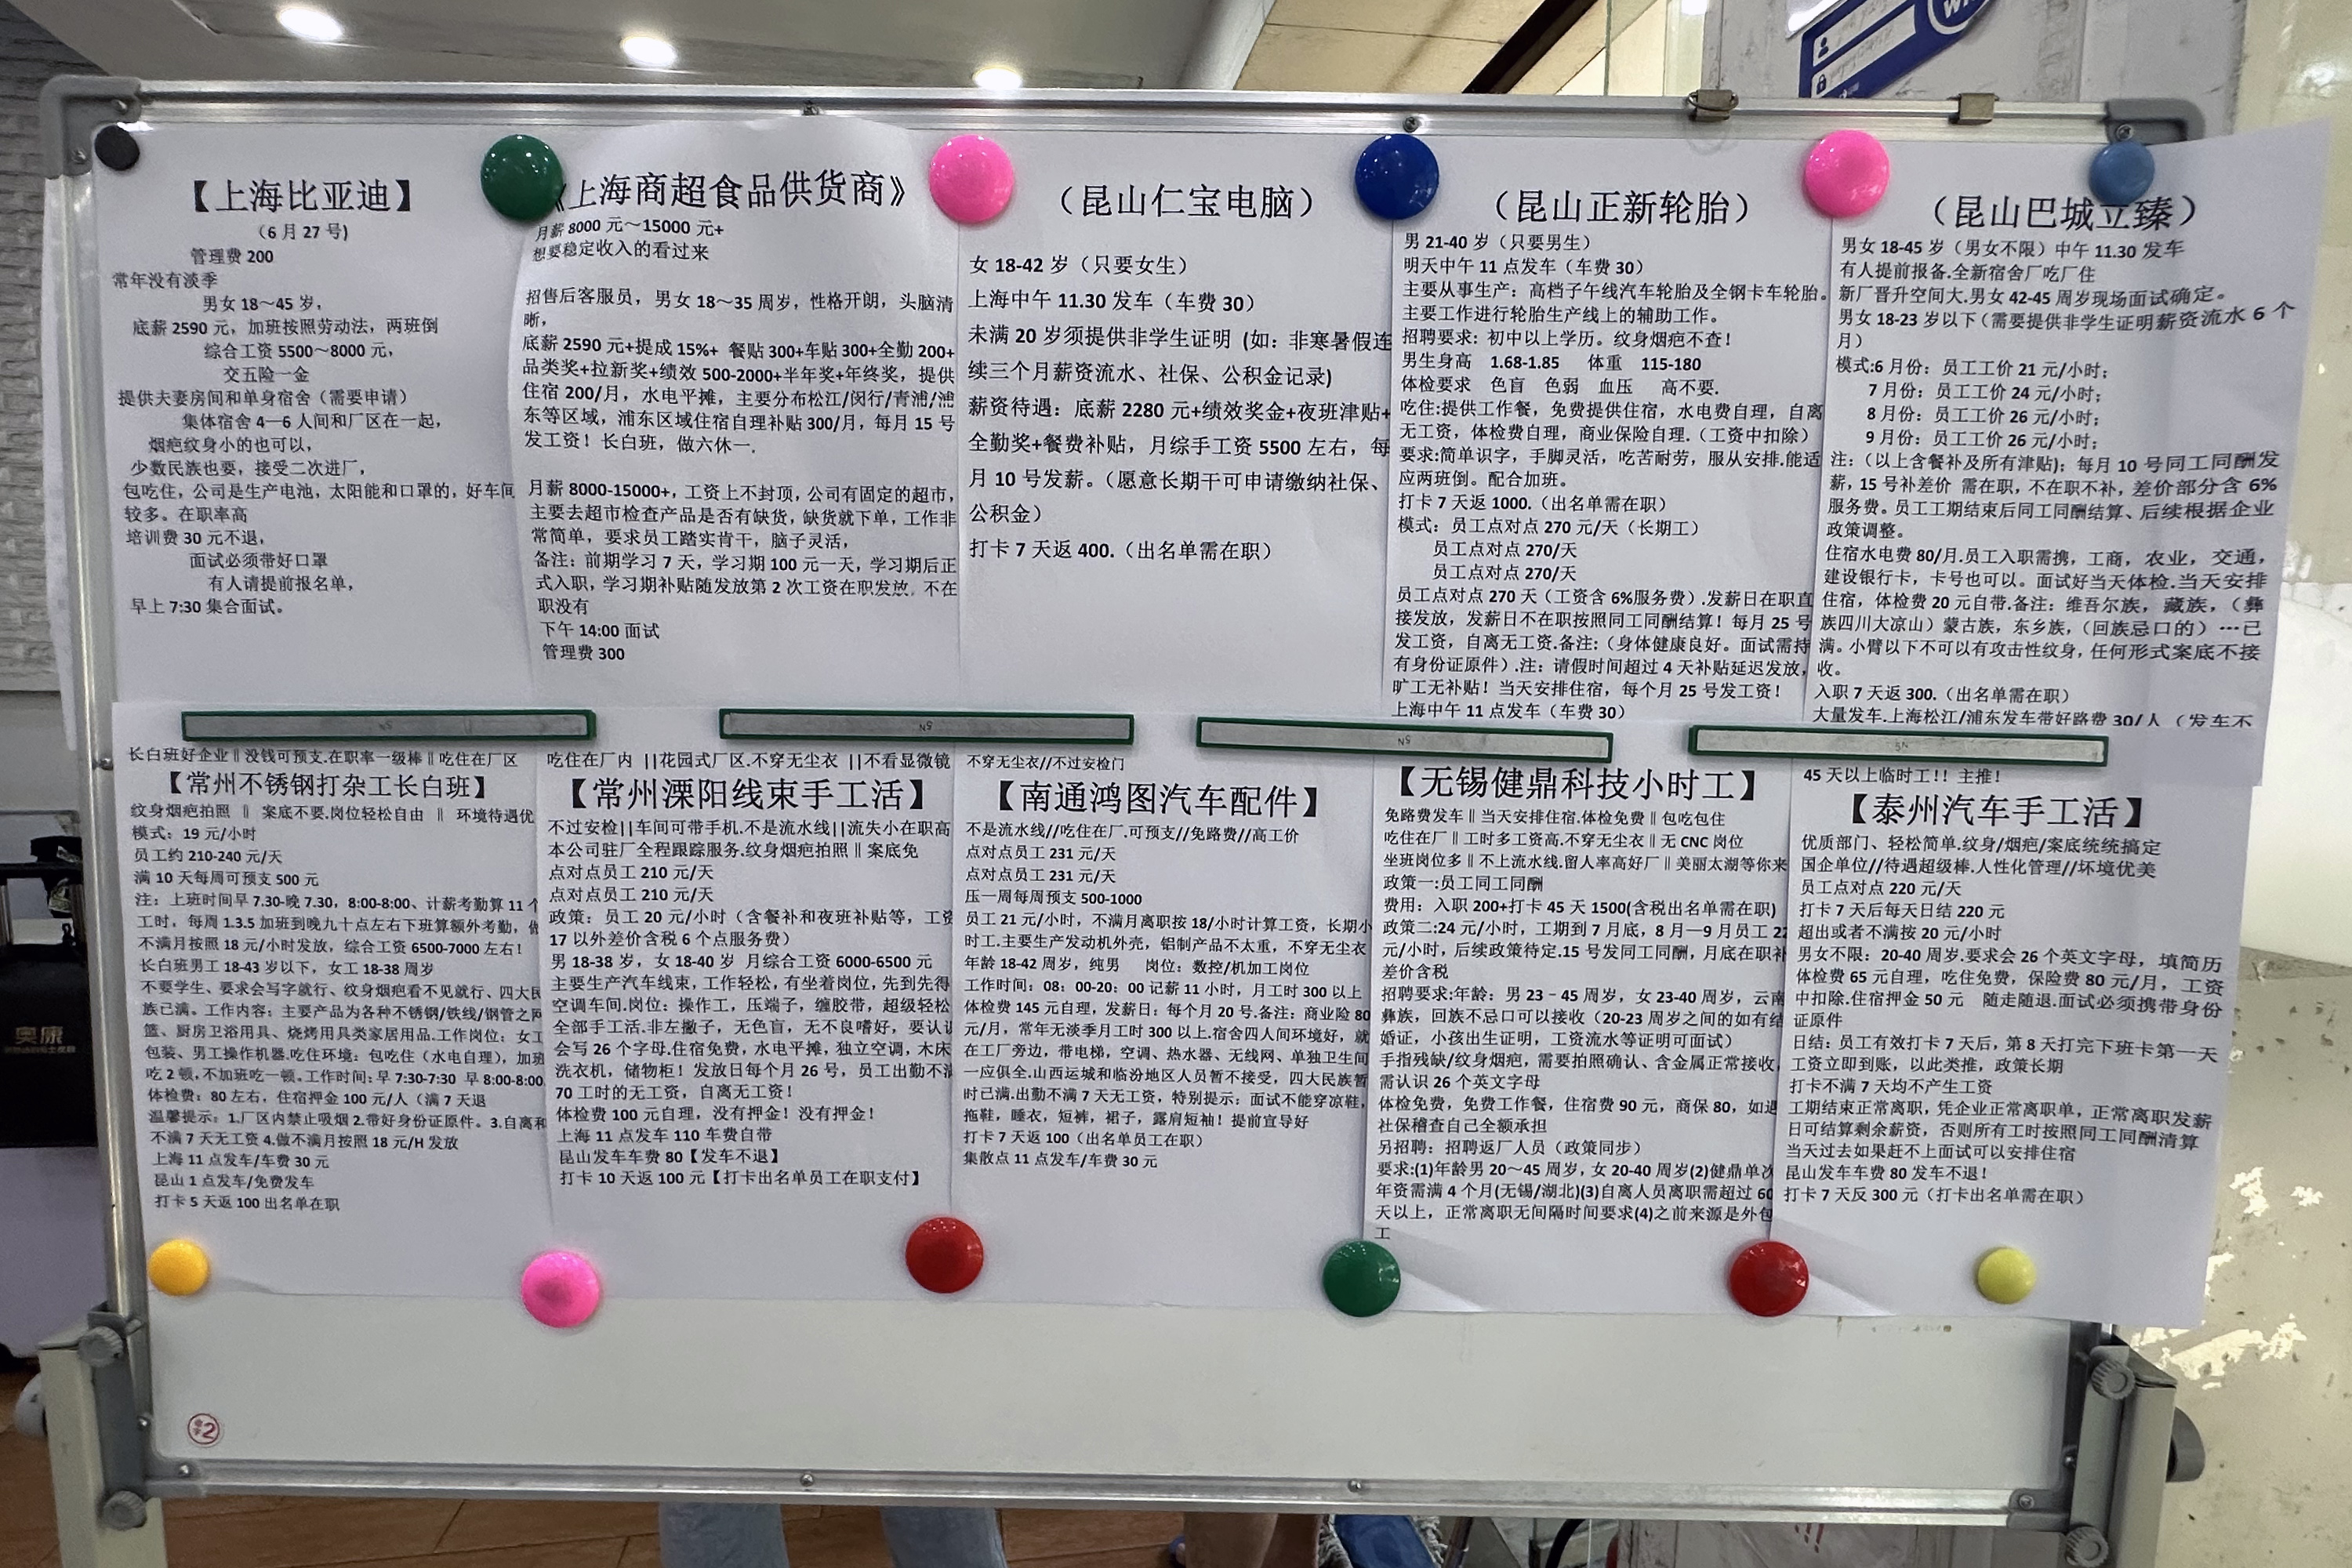 【上海比亚迪】
（6 月 27 号)
管理费 200
常年没有淡季
男女 18～45 岁，
底薪 2590 元，加班按照劳动法，两班倒
综合工资 5500～8000 元，
交五险一金
提供夫妻房间和单身宿舍（需要申请）
集体宿舍 4—6 人间和厂区在一起，
烟疤纹身小的也可以，
少数民族也要，接受二次进厂，
包吃住，公司是生产电池，太阳能和口罩的，好车间
较多。在职率高
培训费 30 元不退，
面试必须带好口罩
有人请提前报名单，
早上 7:30 集合面试。
《上海商超食品供货商》
月薪 8000 元～15000 元+
想要稳定收入的看过来
招售后客服员，男女 18～35 周岁，性格开朗，头脑清
晰，
底薪 2590 元+提成 15%+ 餐贴 300+车贴 300+全勤 200+
品类奖+拉新奖+绩效 500-2000+半年奖+年终奖，提供
住宿 200/月，水电平摊，主要分布松江/闵行/青浦/浦
东等区域，浦东区域住宿自理补贴 300/月，每月 15 号
发工资！长白班，做六休一.
月薪 8000-15000+，工资上不封顶，公司有固定的超市，
主要去超市检查产品是否有缺货，缺货就下单，工作非
常简单，要求员工踏实肯干，脑子灵活，
备注：前期学习 7 天，学习期 100 元一天，学习期后正
式入职，学习期补贴随发放第 2 次工资在职发放，不在
职没有
下午 14:00 面试
管理费 300
（昆山仁宝电脑）
女 18-42 岁（只要女生）
上海中午 11.30 发车（车费 30）
未满 20 岁须提供非学生证明 (如：非寒暑假连
续三个月薪资流水、社保、公积金记录)
薪资待遇：底薪 2280 元+绩效奖金+夜班津贴+
全勤奖+餐费补贴，月综手工资 5500 左右，每
月 10 号发薪。（愿意长期干可申请缴纳社保、
公积金）
打卡 7 天返 400.（出名单需在职）
（昆山正新轮胎）
男 21-40 岁（只要男生）
明天中午 11 点发车（车费 30）
主要从事生产：高档子午线汽车轮胎及全钢卡车轮胎。
主要工作进行轮胎生产线上的辅助工作。
招聘要求：初中以上学历。纹身烟疤不查！
男生身高 1.68-1.85 体重 115-180
体检要求 色盲 色弱 血压 高不要.
吃住:提供工作餐，免费提供住宿，水电费自理，自离
无工资，体检费自理，商业保险自理.（工资中扣除）
要求:简单识字，手脚灵活，吃苦耐劳，服从安排.能适
应两班倒。配合加班。
打卡 7 天返 1000.（出名单需在职）
模式：员工点对点 270 元/天（长期工）
员工点对点 270/天
员工点对点 270/天
员工点对点 270 天（工资含 6%服务费）.发薪日在职直
接发放，发薪日不在职按照同工同酬结算！每月 25 号
发工资，自离无工资.备注:（身体健康良好。面试需持
有身份证原件）.注：请假时间超过 4 天补贴延迟发放，
旷工无补贴！当天安排住宿，每个月 25 号发工资！
上海中午 11 点发车（车费 30）
（昆山巴城立臻）
男女 18-45 岁（男女不限）中午 11.30 发车
有人提前报备.全新宿舍厂吃厂住
新厂晋升空间大.男女 42-45 周岁现场面试确定。
男女 18-23 岁以下（需要提供非学生证明薪资流水 6 个
月）
模式:6 月份：员工工价 21 元/小时；
7 月份：员工工价 24 元/小时；
8 月份：员工工价 26 元/小时；
9 月份：员工工价 26 元/小时；
注：（以上含餐补及所有津贴)；每月 10 号同工同酬发
薪，15 号补差价 需在职，不在职不补，差价部分含 6%
服务费。员工工期结束后同工同酬结算、后续根据企业
政策调整。
住宿水电费 80/月.员工入职需携，工商，农业，交通，
建设银行卡，卡号也可以。面试好当天体检.当天安排
住宿，体检费 20 元自带.备注：维吾尔族，藏族，（彝
族四川大凉山）蒙古族，东乡族，（回族忌口的）…已
满。小臂以下不可以有攻击性纹身，任何形式案底不接
收。
入职 7 天返 300.（出名单需在职）
大量发车.上海松江/浦东发车带好路费 30/人（发车不
长白班好企业‖没钱可预支.在职率一级棒‖吃住在厂区
【常州不锈钢打杂工长白班】
纹身烟疤拍照 ‖ 案底不要.岗位轻松自由 ‖ 环境待遇优
模式：19 元/小时
员工约 210-240 元/天
满 10 天每周可预支 500 元
注：上班时间早 7.30-晚 7.30，8:00-8:00、计薪考勤算 11 个
工时，每周 1.3.5 加班到晚九十点左右下班算额外考勤，做
不满月按照 18 元/小时发放，综合工资 6500-7000 左右！
长白班男工 18-43 岁以下，女工 18-38 周岁
不要学生、要求会写字就行、纹身烟疤看不见就行、四大民
族已满。工作内容：主要产品为各种不锈钢/铁线/钢管之网
篮、厨房卫浴用具、烧烤用具类家居用品.工作岗位：女工
包装、男工操作机器.吃住环境：包吃住（水电自理），加班
吃 2 顿，不加班吃一顿.工作时间：早 7:30-7:30 早 8:00-8:00.
体检费：80 左右，住宿押金 100 元/人（满 7 天退
温馨提示：1.厂区内禁止吸烟 2.带好身份证原件。3.自离和
不满 7 天无工资 4.做不满月按照 18 元/H 发放
上海 11 点发车/车费 30 元
昆山 1 点发车/免费发车
打卡 5 天返 100 出名单在职
吃住在厂内 ||花园式厂区.不穿无尘衣 ||不看显微镜
【常州溧阳线束手工活】
不过安检||车间可带手机.不是流水线||流失小在职高
本公司驻厂全程跟踪服务.纹身烟疤拍照‖案底免
点对点员工 210 元/天
点对点员工 210 元/天
政策：员工 20 元/小时（含餐补和夜班补贴等，工资
17 以外差价含税 6 个点服务费）
男 18-38 岁，女 18-40 岁 月综合工资 6000-6500 元
主要生产汽车线束，工作轻松，有坐着岗位，先到先得
空调车间.岗位：操作工，压端子，缠胶带，超级轻松
全部手工活.非左撇子，无色盲，无不良嗜好，要认识
会写 26 个字母.住宿免费，水电平摊，独立空调，木床
洗衣机，储物柜！发放日每个月 26 号，员工出勤不满
70 工时的无工资，自离无工资！
体检费 100 元自理，没有押金！没有押金！
上海 11 点发车 110 车费自带
昆山发车车费 80【发车不退】
打卡 10 天返 100 元【打卡出名单员工在职支付】
不穿无尘衣//不过安检门
【南通鸿图汽车配件】
不是流水线//吃住在厂.可预支//免路费//高工价
点对点员工 231 元/天
点对点员工 231 元/天
压一周每周预支 500-1000
员工 21 元/小时，不满月离职按 18/小时计算工资，长期小
时工.主要生产发动机外壳，铝制产品不太重，不穿无尘衣
年龄 18-42 周岁，纯男 岗位：数控/机加工岗位
工作时间：08：00-20：00 记薪 11 小时，月工时 300 以上
体检费 145 元自理，发薪日：每个月 20 号.备注：商业险 80
元/月，常年无淡季月工时 300 以上.宿舍四人间环境好，就
在工厂旁边，带电梯，空调、热水器、无线网、单独卫生间
一应俱全.山西运城和临汾地区人员暂不接受，四大民族暂
时已满.出勤不满 7 天无工资，特别提示：面试不能穿凉鞋，
拖鞋，睡衣，短裤，裙子，露肩短袖！提前宣导好
打卡 7 天返 100（出名单员工在职）
集散点 11 点发车/车费 30 元
【无锡健鼎科技小时工】
免路费发车‖当天安排住宿.体检免费‖包吃包住
吃住在厂‖工时多工资高.不穿无尘衣‖无 CNC 岗位
坐班岗位多‖不上流水线.留人率高好厂‖美丽太湖等你来
政策一:员工同工同酬
费用：入职 200+打卡 45 天 1500(含税出名单需在职)
政策二:24 元/小时，工期到 7 月底，8 月—9 月员工 22
元/小时，后续政策待定.15 号发同工同酬，月底在职补
差价含税
招聘要求:年龄：男 23－45 周岁，女 23-40 周岁，云南
彝族，回族不忌口可以接收（20-23 周岁之间的如有结
婚证，小孩出生证明，工资流水等证明可面试）
手指残缺/纹身烟疤，需要拍照确认、含金属正常接收，
需认识 26 个英文字母
体检免费，免费工作餐，住宿费 90 元，商保 80，如遇
社保稽查自己全额承担
另招聘：招聘返厂人员（政策同步）
要求:(1)年龄男 20～45 周岁，女 20-40 周岁(2)健鼎单次
年资需满 4 个月(无锡/湖北)(3)自离人员离职需超过 60
天以上，正常离职无间隔时间要求(4)之前来源是外包
工
45 天以上临时工!！主推！
【泰州汽车手工活】
优质部门、轻松简单.纹身/烟疤/案底统统搞定
国企单位//待遇超级棒.人性化管理//环境优美
员工点对点 220 元/天
打卡 7 天后每天日结 220 元
超出或者不满按 20 元/小时
男女不限：20-40 周岁.要求会 26 个英文字母，填简历
体检费 65 元自理，吃住免费，保险费 80 元/月，工资
中扣除.住宿押金 50 元 随走随退.面试必须携带身份
证原件
日结：员工有效打卡 7 天后，第 8 天打完下班卡第一天
工资立即到账，以此类推，政策长期
打卡不满 7 天均不产生工资
工期结束正常离职，凭企业正常离职单，正常离职发薪
日可结算剩余薪资，否则所有工时按照同工同酬清算
当天过去如果赶不上面试可以安排住宿
昆山发车车费 80 发车不退！
打卡 7 天反 300 元（打卡出名单需在职）
奥康